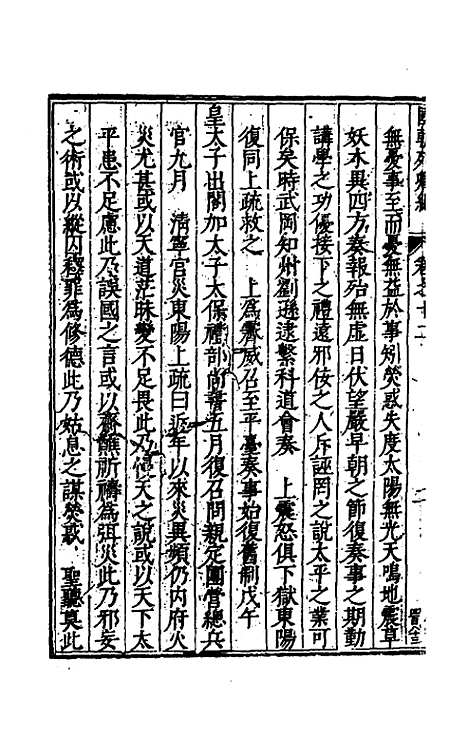 卷之十一
無憂事至而憂無益於事矧熒惑失度太陽無光天鳴地震草
妖木異四方奏報殆無虛日伏望嚴早朝之節復奏事之期動
講學之功優接下之禮遠邪佞之人斥誣罔之說太平之業可
保矣時武岡知州劉遜逮繫科道會奏　上震怒俱下獄東陽
復同上疏救之　上為霽威召至平臺奏事始復舊制戊午
皇太子出閣加太子太保禮部尚書五月復召問親定團營總兵
官九月　清寧宮災東陽上疏曰近年以來災異頻仍內府火
災尤甚或以天道茫昧變不足畏此乃慢天之說或以天下太
平患不足慮此乃誤國之言或以齋醮祈禱為弭災此乃邪妄
之術或以縱囚釋罪為修德此乃姑息之謀熒惑　聖聽莫此